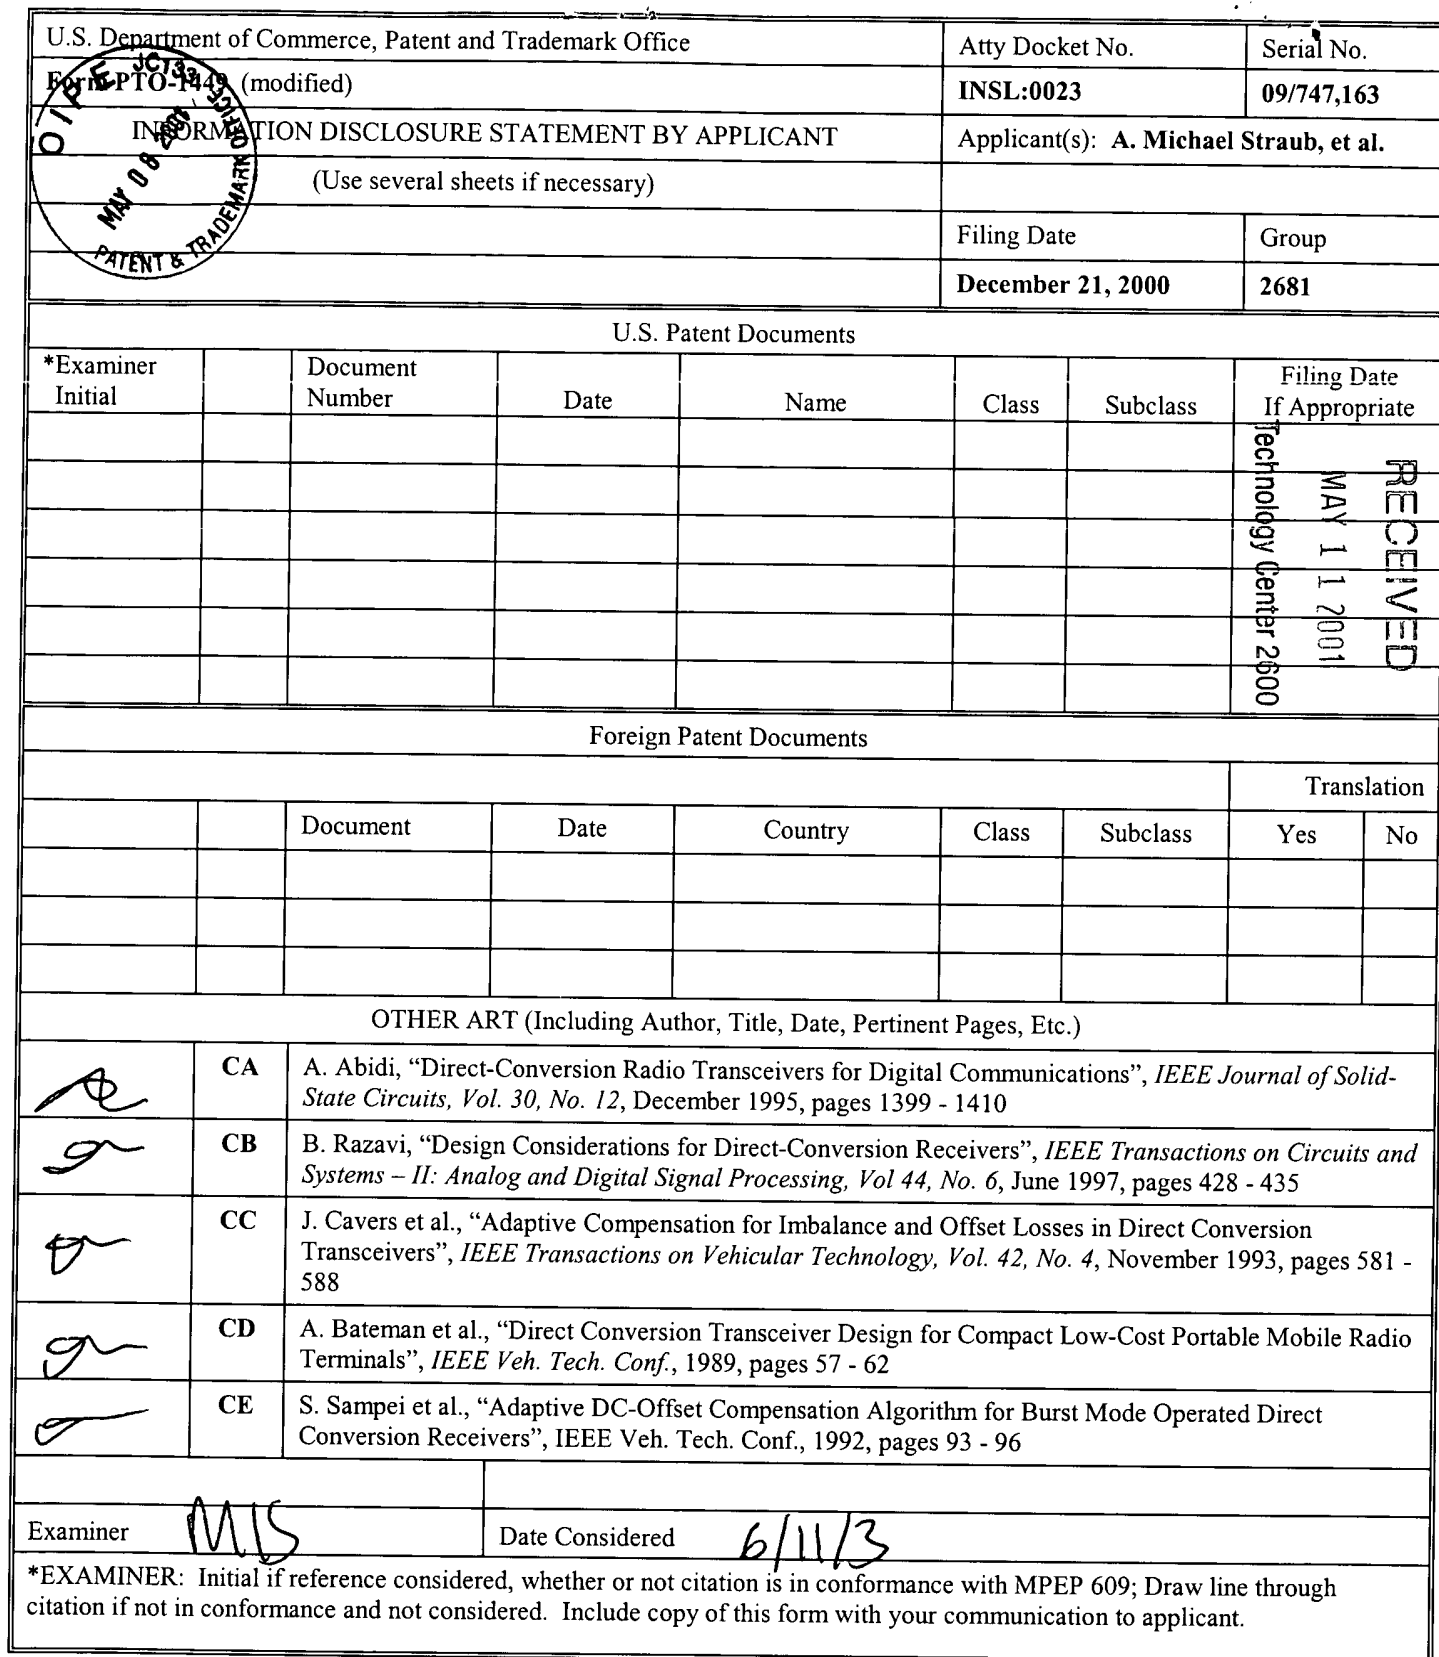 U.S. Department of Commerce, Patent and Trademark Office
Atty Docket No.
Serial No.
Form PTO-1449 (modified)
INSL:0023
09/747,163
INFORMATION DISCLOSURE STATEMENT BY APPLICANT
Applicant(s): A. Michael Straub, et al.
(Use several sheets if necessary)
Filing Date
Group
December 21, 2000
2681
OIPE JC133
MAY 08 2001
PATENT & TRADEMARK OFFICE
U.S. Patent Documents
*Examiner
Initial
Document
Number
Date
Name
Class
Subclass
Filing Date
If Appropriate
RECEIVED
MAY 11 2001
Technology Center 2600
Foreign Patent Documents
Translation
Document
Date
Country
Class
Subclass
Yes
No
OTHER ART (Including Author, Title, Date, Pertinent Pages, Etc.)
CA
A. Abidi, “Direct-Conversion Radio Transceivers for Digital Communications”, IEEE Journal of Solid-
State Circuits, Vol. 30, No. 12, December 1995, pages 1399 - 1410
CB
B. Razavi, “Design Considerations for Direct-Conversion Receivers”, IEEE Transactions on Circuits and
Systems – II: Analog and Digital Signal Processing, Vol 44, No. 6, June 1997, pages 428 - 435
CC
J. Cavers et al., “Adaptive Compensation for Imbalance and Offset Losses in Direct Conversion
Transceivers”, IEEE Transactions on Vehicular Technology, Vol. 42, No. 4, November 1993, pages 581 -
588
CD
A. Bateman et al., “Direct Conversion Transceiver Design for Compact Low-Cost Portable Mobile Radio
Terminals”, IEEE Veh. Tech. Conf., 1989, pages 57 - 62
CE
S. Sampei et al., “Adaptive DC-Offset Compensation Algorithm for Burst Mode Operated Direct
Conversion Receivers”, IEEE Veh. Tech. Conf., 1992, pages 93 - 96
Examiner
Date Considered 6/11/3
*EXAMINER: Initial if reference considered, whether or not citation is in conformance with MPEP 609; Draw line through
citation if not in conformance and not considered. Include copy of this form with your communication to applicant.